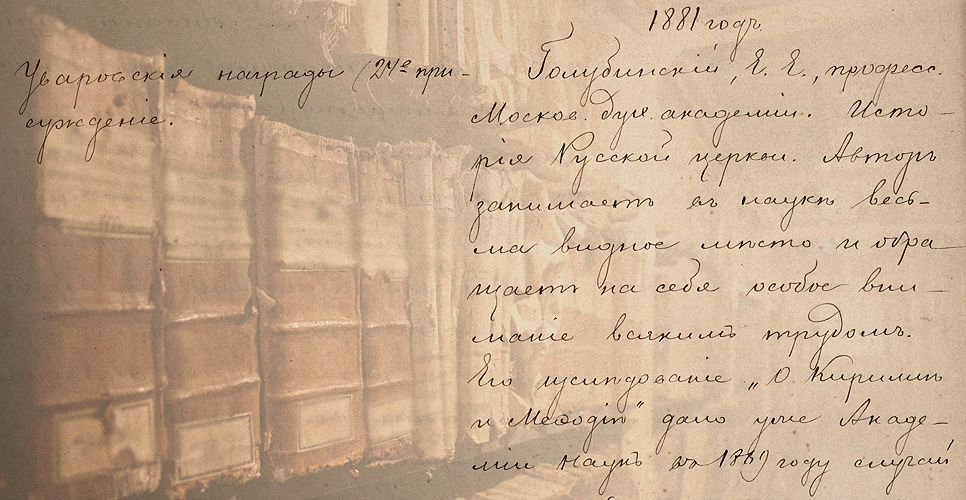 1881 годъ.
Уваровскія награды (24е при-
сужденіе.
Голубинскій, Е. Е., професс.
Москов. дух. академіи. Исто-
рія Русской церкви. Авторъ
занимаетъ въ наукѣ весь-
ма видное мѣсто и обра-
щаетъ на себя особое вни-
маніе всякимъ трудомъ.
Его изслѣдованіе „О Кириллѣ
и Меѳодіи" дало уже Акаде-
міи Наукъ въ году случай